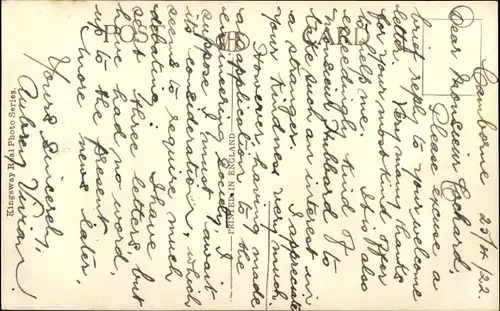 Camborne 25/4/22.
Dear Monsieur Cochard,
Please excuse a
brief reply to your welcome
letter. Very many thanks
for your most kind offer
to help me. It is also
exceedingly kind of
Monsieur Hubbard to
take such an interest in
a stranger. I appreciate
your kindness very much.
However, having made
application to the
Engineering Society I
suppose I must await
its consideration, which
seems to require much
debating. I have
sent three letters, but
have had no word,
up to the present.
More news later.
Yours Sincerely,
Vivian.
POST CARD
PRINTED IN ENGLAND
Kingsway Real Photo Series.